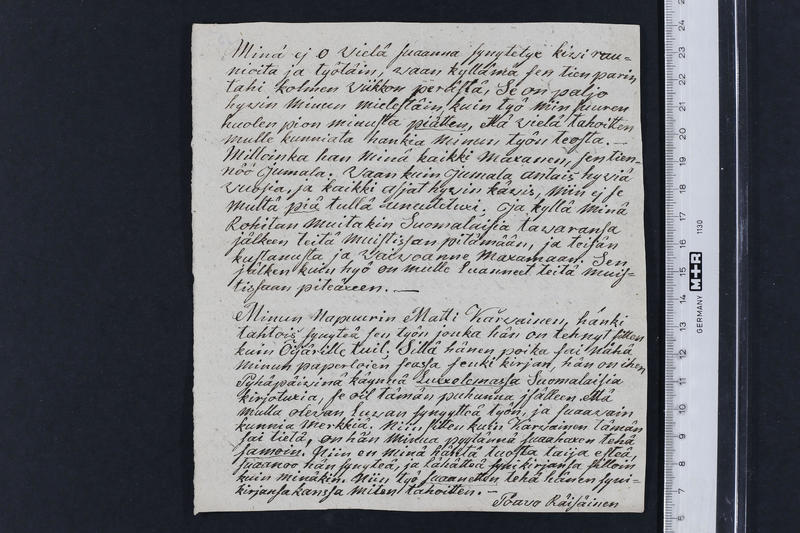 Minä ej o vielä saanna synytetyx kivi rau-
nioita ja työtäin, vaan kyllämä sen tien parin
tahi kolmen viikkon perästä, Se on paljo
hyvin minun mielestäin, kuin työ niin suuren
huolen pion minusta piätten, Että vielä tahoitten
mulle kunniata hankia minun työn teosta. —
Milloinka han minä kaikki maxanen, sen tien-
nöö Jumala. Vaan kuin Jumala antais hyviä
vuosia, ja kaikki asjat hyvin kävis, niin ej se
multa piä tullä uneutetuxi; Ja kyllä minä
kohitan muitakin Suomalaisia tavaransa
jälkeen teitä muistissan pitämään, ja teijän
kustanusta ja vaivoanne maxamaan. Sen
jälken kuin hyö on mulle luanneet teitä muis-
tissaan piteäxeen. —
Minun Napuurin Matti Kärvainen, hänki
tahtois synyteä sen työn jonka hän on tehnyt sitten
kuin Öijärille tuli. Sillä hänen poika sai nähä
minun paperloien seassa senki kirjan, hän on ihen
Pyhäpäivinä käynnä Luxolomassa Suomalaisia
kirjotuxia, se oli tämän puhunna jsälleen Että
mulla olevan luvan synyytteä työn, ja suavain
kunnia merkkiä. Niin sitten kuin Karvainen tämän
sai tietä, on hän minua pyytännä suaahaxen tehä
samoin. Niin en minä häntä tuosta taija esteä,
suanoo hän synyteä, ja lähätteä syni kirjansa silloin
kuin minäkin. Niin työ suanetten tehä hänen syni-
kirjansa kanssa miten tahoitten. —
Poavo Räisäinen
20
19
18
17
16
15
14
13
12
11
10
9
8
7
6
21
22
23
24
GERMANY M+R 1130